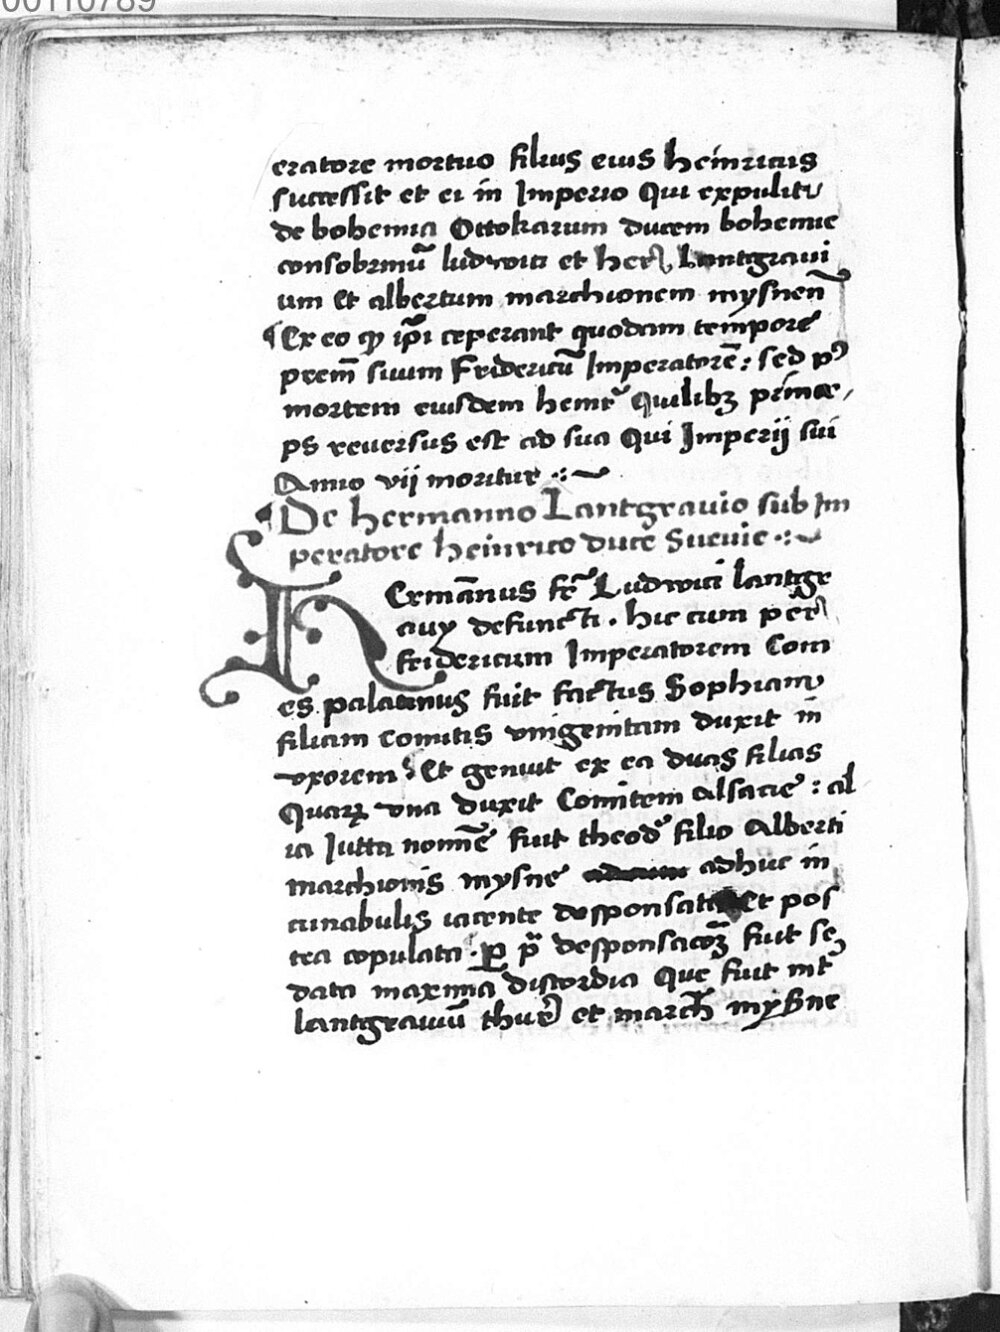 00110789
eratore mortuo filius eius heinricus
successit et ei in Imperio Qui expulit
de bohemia Ottokarum ducem bohemie
consobrinū ludwici et her lantgravi
um Et albertum marchionem mysnen̄
Ex eo ꝙ ip̄i ceperant quodam tempore
prem̄ suum Fridericū Imperatorē : sed pꝰ
mortem eiusdem heinr̄ Quilibꝫ prince
ps reuersus est ad sua Qui Imperij sui
Anno vij moritur
De hermanno Lantgrauio sub Im
peratore heinrico duce Sueuie
Ermānus fr̄ Ludwici lantgr
auy defuncti . hic cum per
fridericum Imperatorem Com
es palatinus fuit factus Sophiam
filiam comitis vnigenitam duxit in
vxorem Et genuit ex ea duas filias
Quaꝝ vna duxit Comitem alsacie : al
ia Jutta nomīe fuit theod filio Alberti
marchionis mysne adhuc in
cunabulis iacente desponsata Et pos
tea copulata . ꝑ p̄ desponsacōꝫ fuit se
data maxima discordia Que fuit int̄
lantgrauiū thur et march mysne